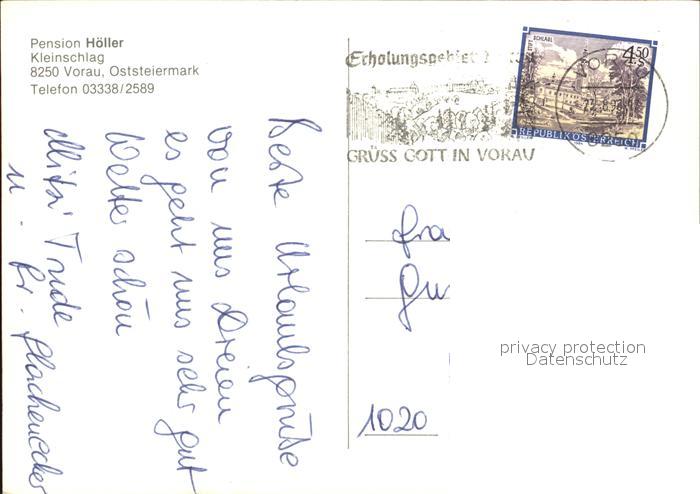 Pension Höller
Kleinschlag
8250 Vorau, Oststeiermark
Telefon 03338/2589
Beste Urlaubsgrüße
von uns Dreien
es geht uns sehr gut
Wetter schön
Mitzi Trude
u. Fr. Flachenecker
Erholungsgebiet
GRÜSS GOTT IN VORAU
STIFT SCHLÄGL
4.50
S
REPUBLIK ÖSTERREICH
VORAU
Fra
Gu
1020
privacy protection
Datenschutz